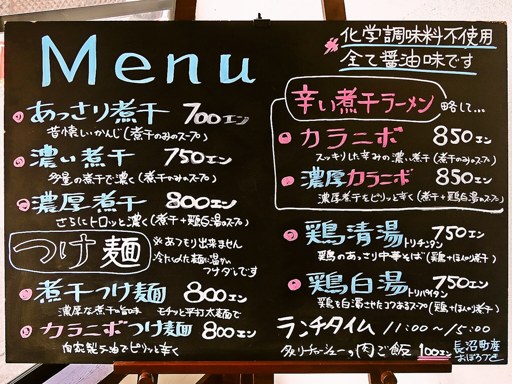 Menu
あっさり煮干 700エン
昔懐しいかんじ(煮干のみのスープ)
濃い煮干 750エン
多量の煮干で濃く(煮干のみのスープ)
濃厚煮干 800エン
さらにトロッと濃く(煮干+鶏白湯のスープ)
つけ麺
※あつもり出来ません
冷たくしめた麺に温かい
つけダレです
煮干つけ麺 800エン
濃厚な煮干の旨味 モチッと平打太麺で
カラニボつけ麺 800エン
自家製ラー油でピリッと辛く
化学調味料不使用
全て醤油味です
辛い煮干ラーメン 略して…
カラニボ 850エン
スッキリした辛みの濃い煮干(煮干のみのスープ)
濃厚カラニボ 850エン
濃厚煮干をピリッと辛く(煮干+鶏白湯スープ)
鶏清湯 トリチンタン 750エン
鶏のあっさり中華そば(鶏+ほんのり煮干)
鶏白湯 トリパイタン 750エン
鶏を白濁させたコクあるスープ(鶏+ほんのり煮干)
ランチタイム 11:00～15:00
炙りチャーシューの肉ご飯 100エン
長沼町産
おぼろづき